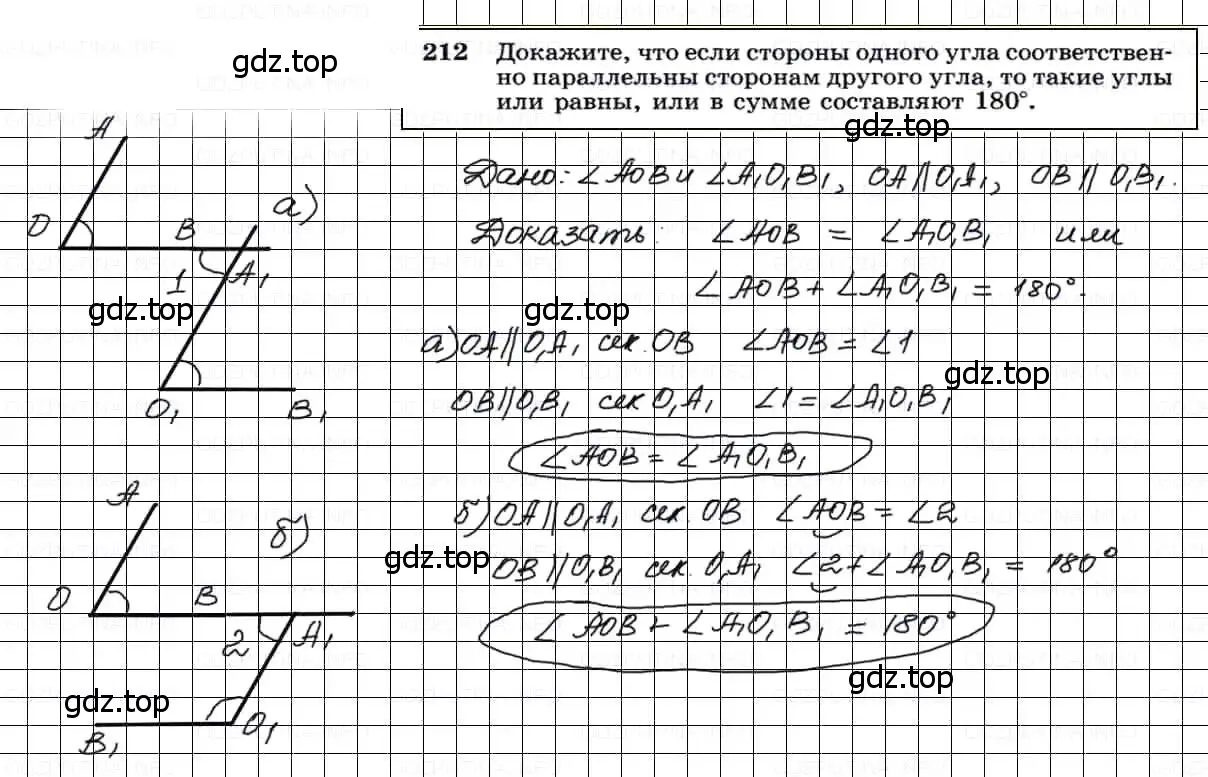 gdz.top
212 Докажите, что если стороны одного угла соответствен-
но параллельны сторонам другого угла, то такие углы
или равны, или в сумме составляют 180°.
gdz.top
A
O
B
а)
1
A₁
gdz.top
O₁
B₁
Дано: ∠AOB и ∠A₁O₁B₁, OA || O₁A₁, OB || O₁B₁.
Доказать: ∠AOB = ∠A₁O₁B₁ или
gdz.top
∠AOB + ∠A₁O₁B₁ = 180°.
а) OA || O₁A₁ сек. OB ∠AOB = ∠1
gdz.top
OB || O₁B₁ сек O₁A₁ ∠1 = ∠A₁O₁B₁
∠AOB = ∠A₁O₁B₁
A
O
B
б)
2
A₁
gdz.top
B₁
O₁
б) OA || O₁A₁ сек. OB ∠AOB = ∠2
gdz.top
OB || O₁B₁ сек. O₁A₁ ∠2 + ∠A₁O₁B₁ = 180°
∠AOB + ∠A₁O₁B₁ = 180°
gdz.top